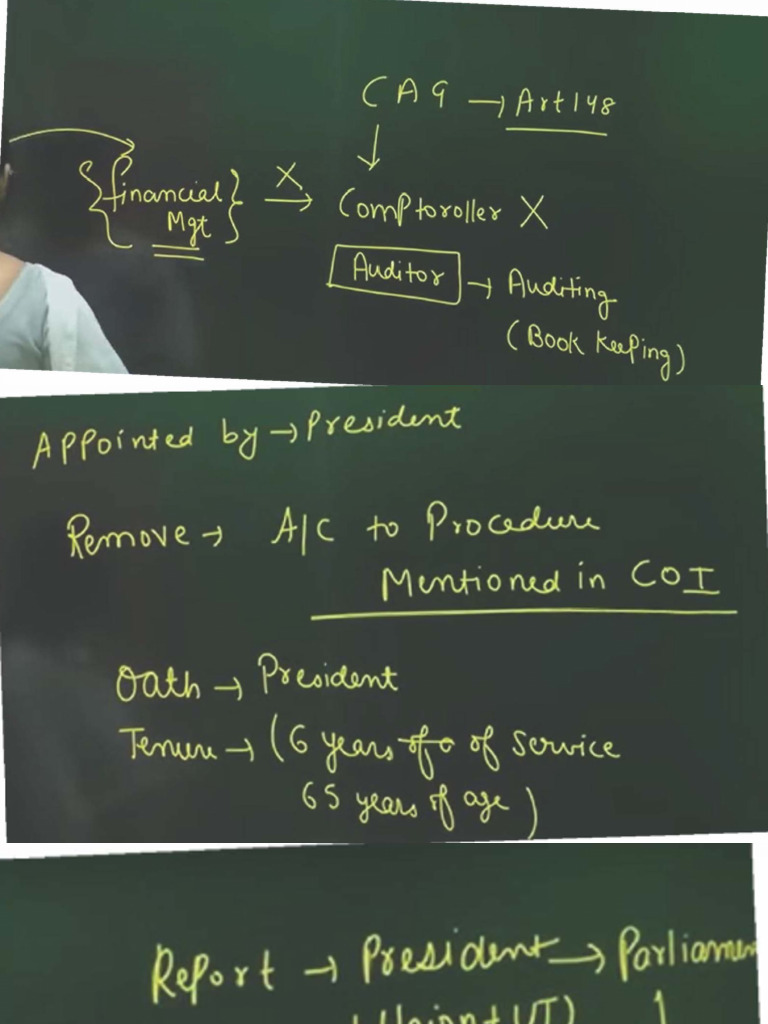 CAG → Art 148
↓
{financial X→ Comptoroller X
Mgt}
Auditor → Auditing
(Book keeping)
Appointed by → President
Remove → A/C to Procedure
Mentioned in COI
Oath → President
Tenure → (6 years of service
65 years of age)
Report → President → Parliamen